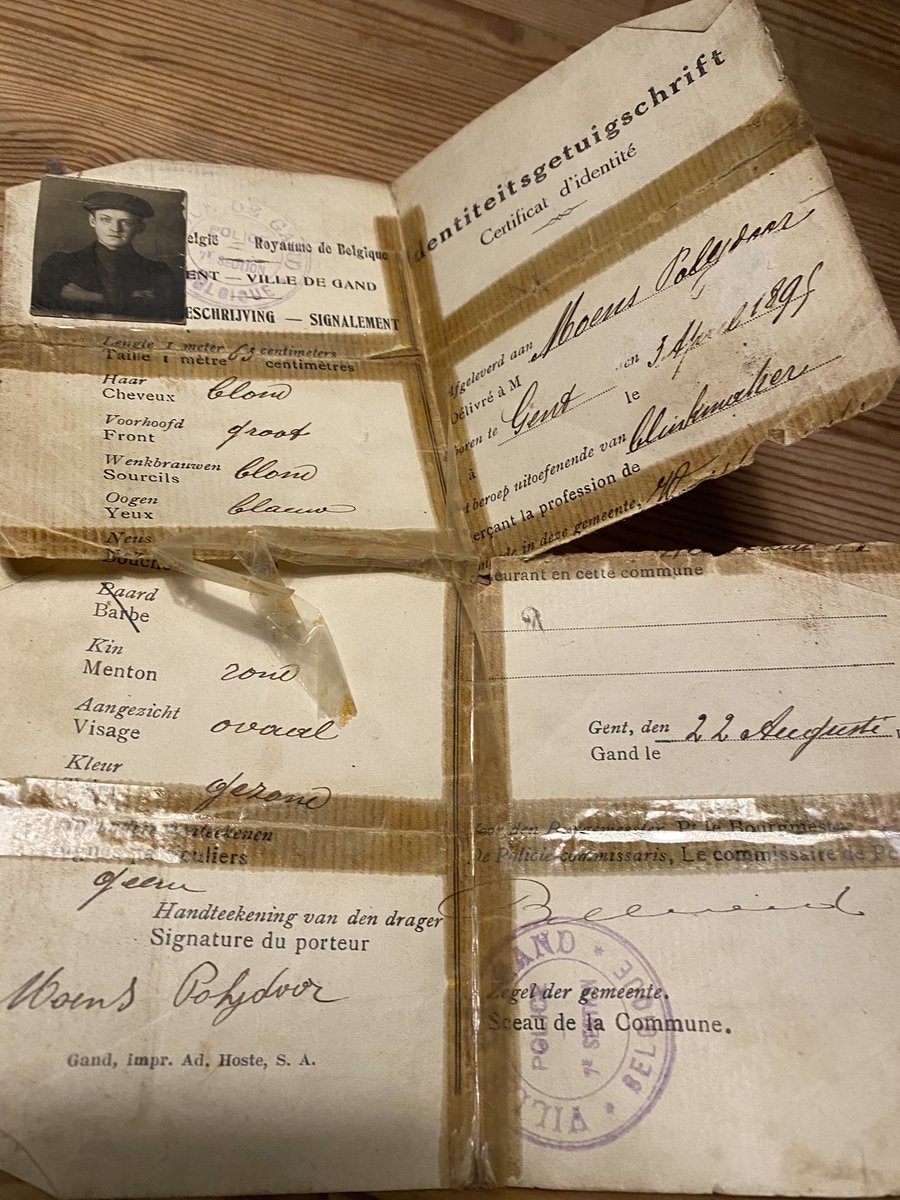 elgië — Royaume de Belgique
ENT — VILLE DE GAND
ESCHRIJVING — SIGNALEMENT
POLICE
7E SECTION
Lengte 1 meter 63 centimeters
Taille 1 mètre centimètres
Haar
Cheveux blond
Voorhoofd
Front groot
Wenkbrauwen
Sourcils blond
Oogen
Yeux blauw
Neus
Bouche
Baard
Barbe
Kin
Menton rond
Aangezicht
Visage ovaal
Kleur
gezond
teekenen
particuliers
geene
Handteekening van den drager
Signature du porteur
Moens Polydoor
Gand, impr. Ad. Hoste, S. A.
dentiteitsgetuigschrift
Certificat d'identité
Afgeleverd aan Moens Polydoor
Délivré à M
boren te Gent den 3 April
à le
t beroep uitoefenende van
erçant la profession de
de in deze gemeente,
eurant en cette commune
Gent, den 22 Augusti
Gand le
den Burgemeester, Pr le Bourgmestre
De Policie-commissaris, Le commissaire de Po
Zegel der gemeente.
Sceau de la Commune.
VILLE GAND * BELGIQUE *
POLICE
7E SECTION